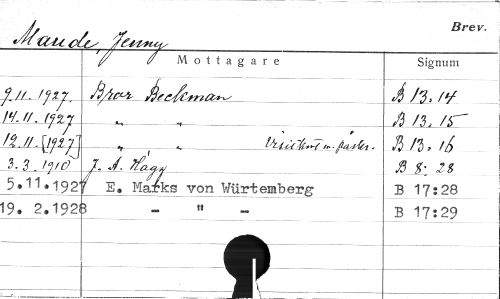 Brev.
Maude, Jenny
Mottagare Signum
9.11.1927. Bror Beckman B 13.14
14.11.1927 " " B 13.15
12.11.[1927] " " B 13.16
3.3.1910 J. A. Hägg B 8:28
5.11.1927 E. Marks von Würtemberg B 17:28
19. 2.1928 - " - B 17:29